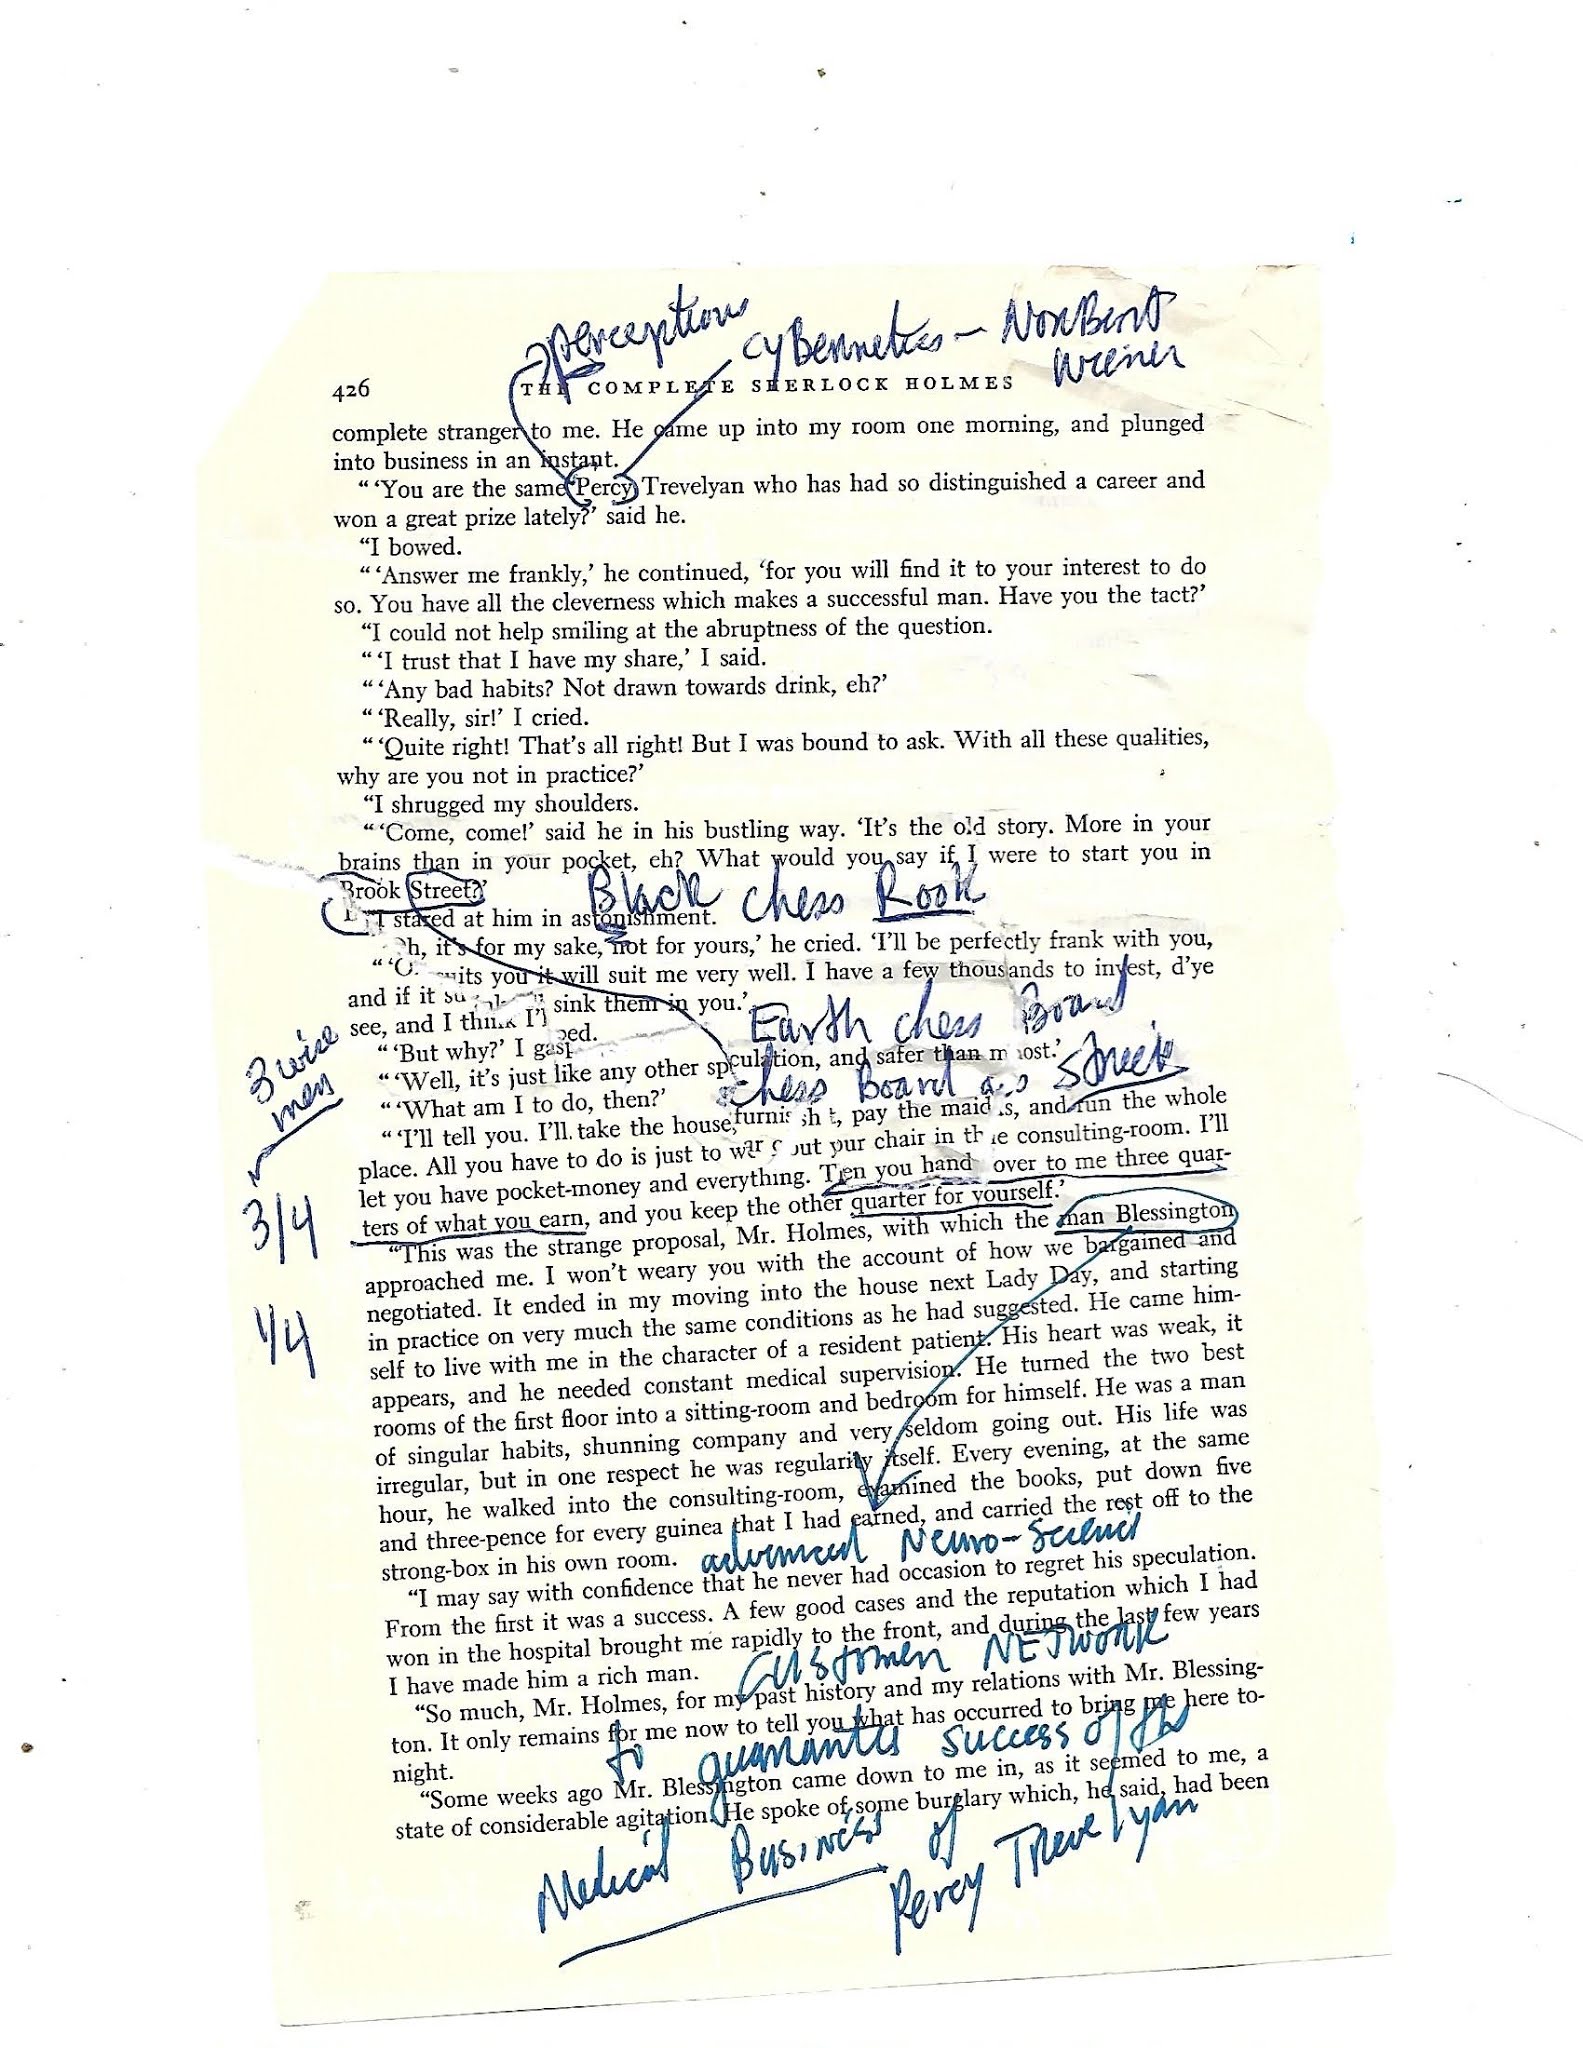 perceptions
cyBernnetics - NorBert
Wreiner
426 THE COMPLETE SHERLOCK HOLMES
complete stranger to me. He came up into my room one morning, and plunged
into business in an instant.
“ ‘You are the same Percy Trevelyan who has had so distinguished a career and
won a great prize lately?’ said he.
“I bowed.
“ ‘Answer me frankly,’ he continued, ‘for you will find it to your interest to do
so. You have all the cleverness which makes a successful man. Have you the tact?’
“I could not help smiling at the abruptness of the question.
“ ‘I trust that I have my share,’ I said.
“ ‘Any bad habits? Not drawn towards drink, eh?’
“ ‘Really, sir!’ I cried.
“ ‘Quite right! That’s all right! But I was bound to ask. With all these qualities,
why are you not in practice?’
“I shrugged my shoulders.
“ ‘Come, come!’ said he in his bustling way. ‘It’s the old story. More in your
brains than in your pocket, eh? What would you say if I were to start you in
Brook Street?’
Black chess Rook
I stared at him in astonishment.
h, it’s for my sake, not for yours,’ he cried. ‘I’ll be perfectly frank with you,
and if it suits you it will suit me very well. I have a few thousands to invest, d’ye
see, and I think I’ll sink them in you.’
Earth chess Board
“ ‘But why?’ I gasped.
“ ‘Well, it’s just like any other speculation, and safer than most.’
chess Board as Streets
“ ‘What am I to do, then?’
“ ‘I’ll tell you. I’ll take the house, furnish it, pay the maids, and run the whole
place. All you have to do is just to wear out your chair in the consulting-room. I’ll
let you have pocket-money and everything. Then you hand over to me three quar-
ters of what you earn, and you keep the other quarter for yourself.’
3 wise
men
3/4
1/4
“This was the strange proposal, Mr. Holmes, with which the man Blessington
approached me. I won’t weary you with the account of how we bargained and
negotiated. It ended in my moving into the house next Lady Day, and starting
in practice on very much the same conditions as he had suggested. He came him-
self to live with me in the character of a resident patient. His heart was weak, it
appears, and he needed constant medical supervision. He turned the two best
rooms of the first floor into a sitting-room and bedroom for himself. He was a man
of singular habits, shunning company and very seldom going out. His life was
irregular, but in one respect he was regularity itself. Every evening, at the same
hour, he walked into the consulting-room, examined the books, put down five
and three-pence for every guinea that I had earned, and carried the rest off to the
strong-box in his own room.
advanced Neuro-Science
“I may say with confidence that he never had occasion to regret his speculation.
From the first it was a success. A few good cases and the reputation which I had
won in the hospital brought me rapidly to the front, and during the last few years
I have made him a rich man.
Customer NETWORK
“So much, Mr. Holmes, for my past history and my relations with Mr. Blessing-
ton. It only remains for me now to tell you what has occurred to bring me here to-
night.
to guarantee success of the
“Some weeks ago Mr. Blessington came down to me in, as it seemed to me, a
state of considerable agitation. He spoke of some burglary which, he said, had been
Medical Business of
Percy Trevelyan